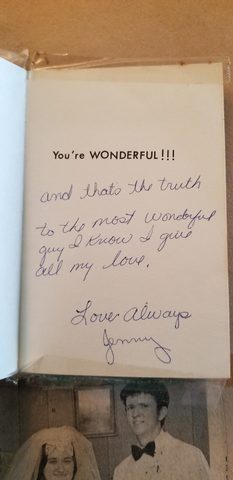 You're WONDERFUL!!!
and thats the truth
to the most wonderful
guy I know I give
all my love.
Love Always
Jenny